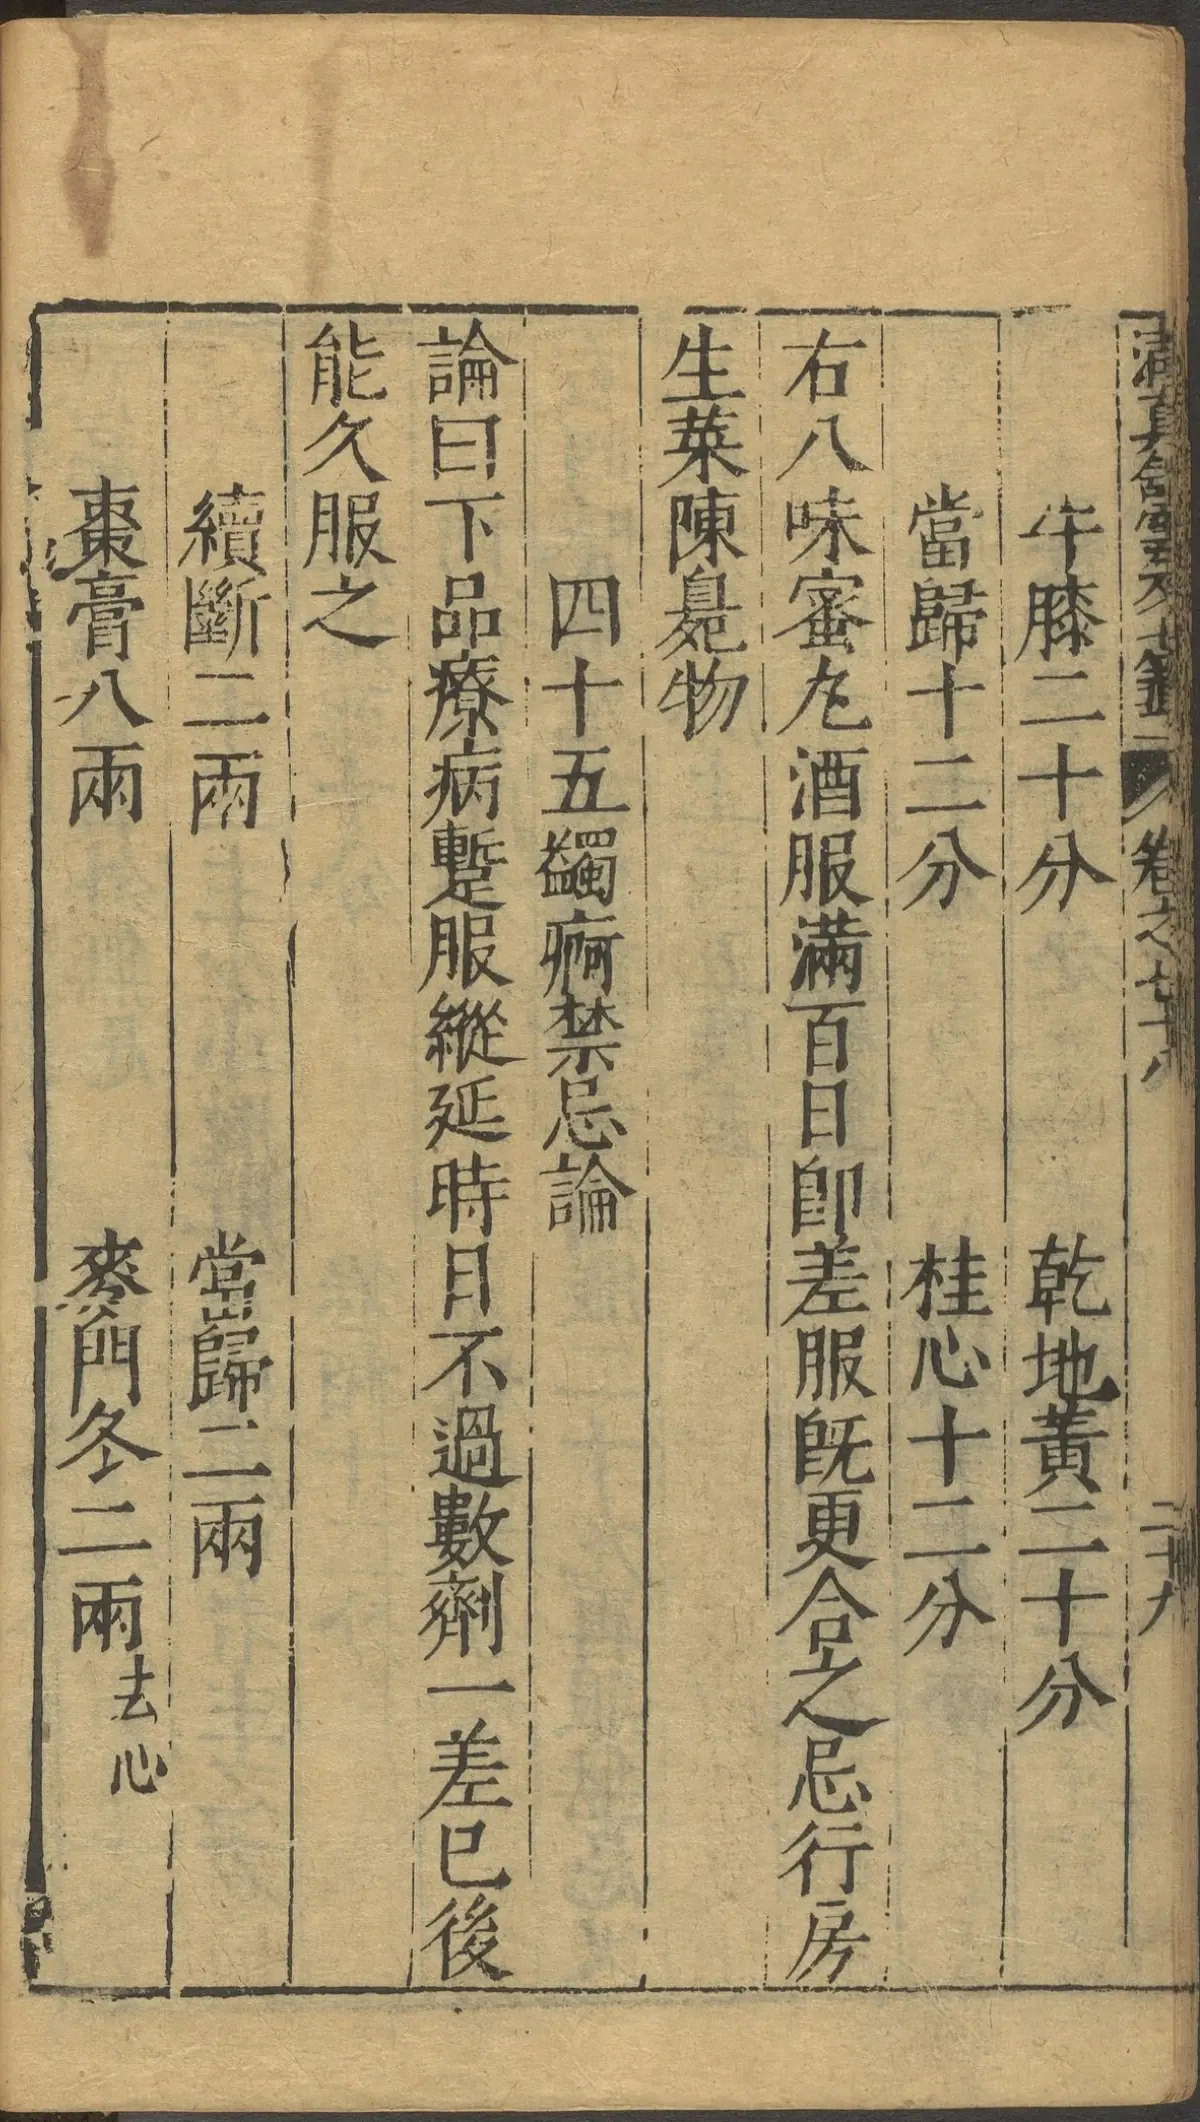 牛膝二十分 乾地黃二十分
當歸十二分 桂心十二分
右八味蜜丸酒服滿百日卽差服旣更合之忌行房
生菜陳臭物
四十五蠲痾禁忌論
論曰下品療病蹔服縱延時日不過數劑一差已後
能久服之
續斷二兩 當歸二兩
棗膏八兩 麥門冬二兩去心